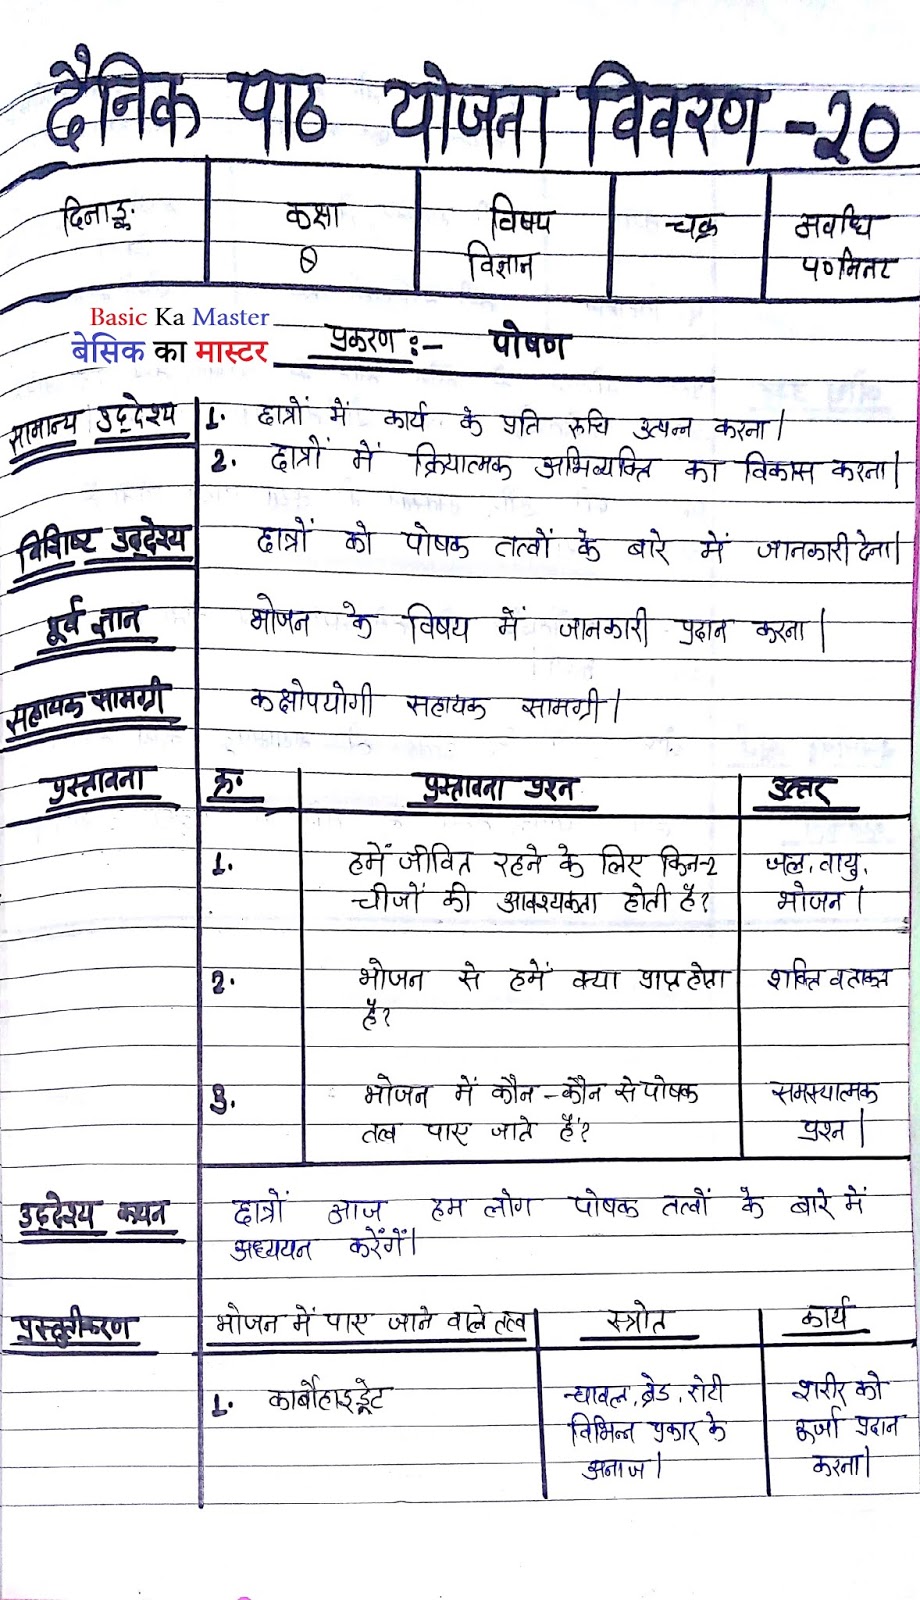 दैनिक पाठ योजना विवरण -२०
दिनाङ्क कक्षा विषय चक्र अवधि
७ विज्ञान ५०मिनट
Basic Ka Master
बेसिक का मास्टर
प्रकरण :- पोषण
सामान्य उद्देश्य 1. छात्रों में कार्य के प्रति रुचि उत्पन्न करना।
2. छात्रों में क्रियात्मक अभिव्यक्ति का विकास करना।
विशिष्ट उद्देश्य छात्रों को पोषक तत्वों के बारे में जानकारी देना।
पूर्व ज्ञान भोजन के विषय में जानकारी प्रदान करना।
सहायक सामग्री कक्षोपयोगी सहायक सामग्री।
प्रस्तावना क्र. प्रस्तावना प्रश्न उत्तर
1. हमें जीवित रहने के लिए किन-2 जल, वायु,
चीजों की आवश्यकता होती है? भोजन।
2. भोजन से हमें क्या प्राप्त होता शक्ति व ताकत
है?
3. भोजन में कौन-कौन से पोषक समस्यात्मक
तत्व पाए जाते हैं? प्रश्न।
उद्देश्य कथन छात्रों आज हम लोग पोषक तत्वों के बारे में
अध्ययन करेंगें।
प्रस्तुतीकरण भोजन में पाए जाने वाले तत्व स्त्रोत कार्य
1. कार्बोहाइड्रेट चावल, ब्रेड, रोटी शरीर को
विभिन्न प्रकार के ऊर्जा प्रदान
अनाज। करना।